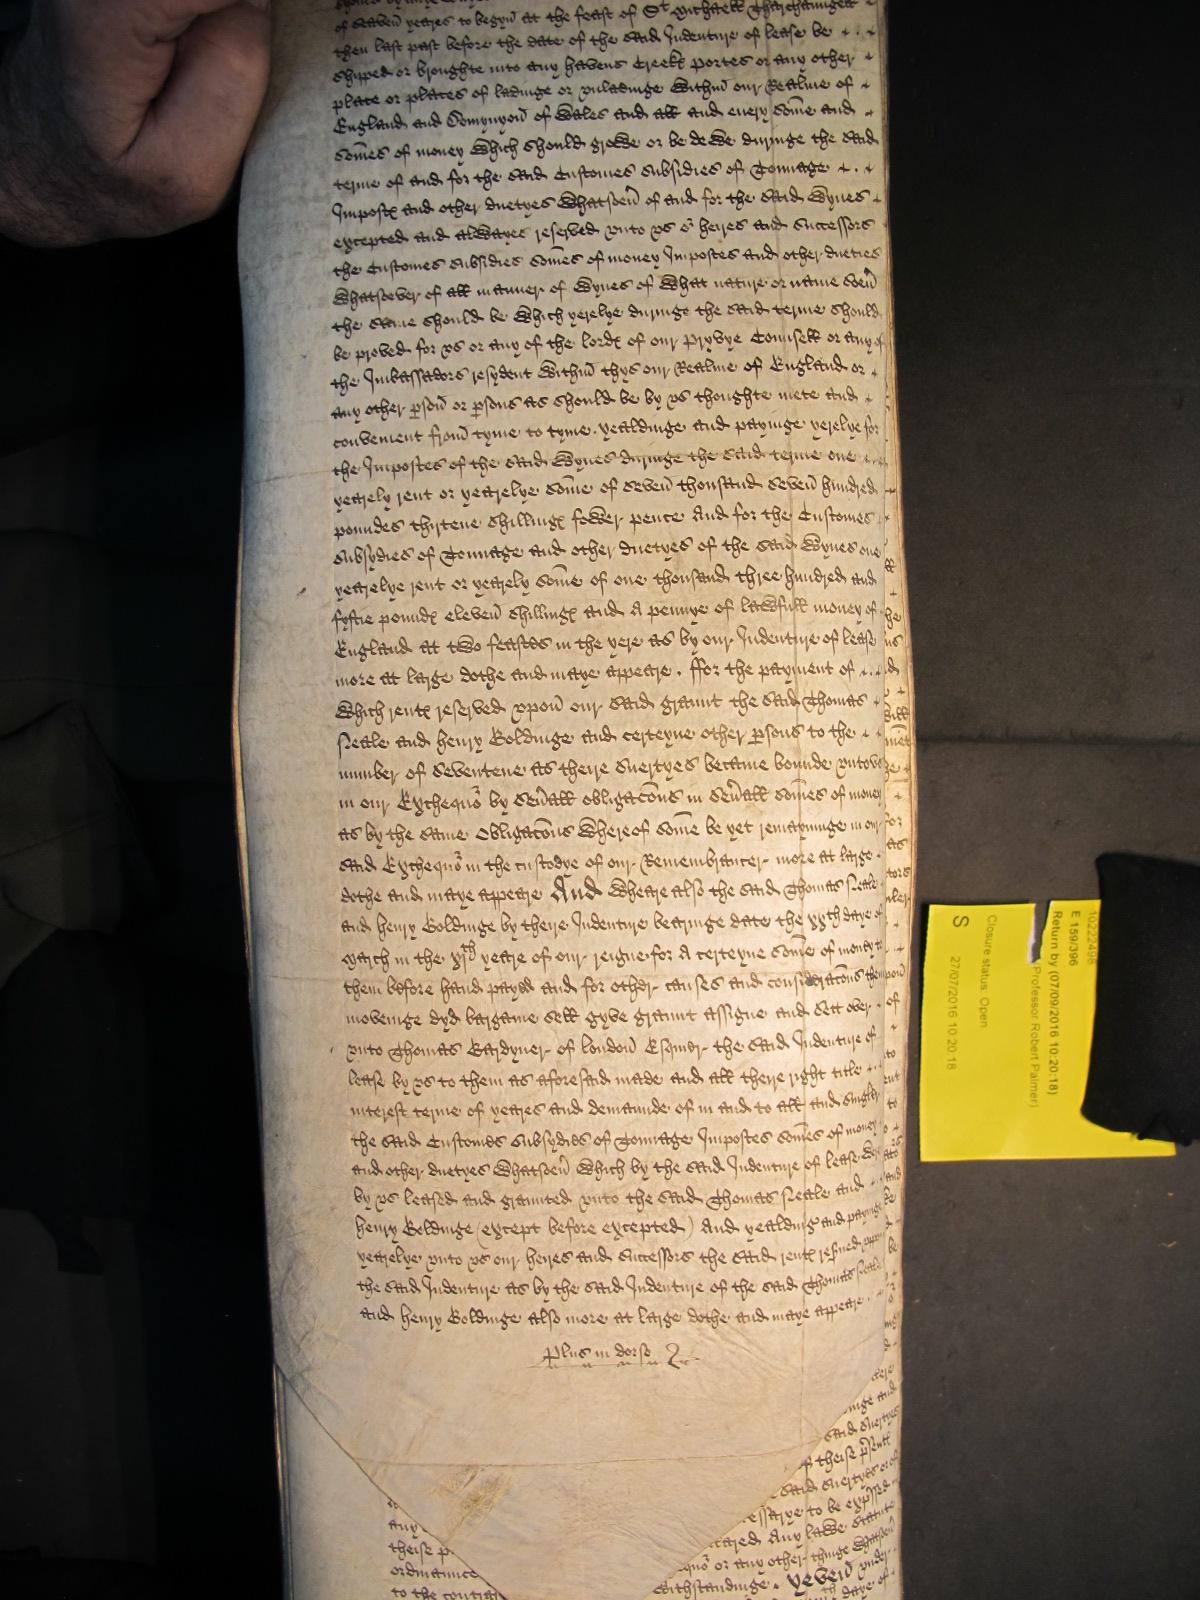 of Seaven yeares to begyn at the feast of St Michaell Tharchangell
then last past before the date of the said Indenture of lease be
shipped or broughte into any havens Creekes portes or any other
place or places of ladinge or unladinge within our Realme of
England and Domynyon of Wales and all and every some and
somes of money which should growe or be dewe duringe the said
terme of and for the said Customes subsidies of Tonnage
Impostes and other duetyes whatsoever of and for the said Wynes
excepted and alwayes reserved unto us or heires and Successors
the Customes subsidies somes of money Impostes and other dueties
whatsoever of all manner of Wynes of what nature or name soever
the same should be which yerelye duringe the said terme should
be proved for us or any of the lordes of our pryvye Counsell or any of
the Imbassadors resydent within thys our Realme of England or
any other person or persons as should be by us thoughte mete and
convenient from tyme to tyme. yealdinge and payinge yerelye for
the Impostes of the said Wynes duringe the said terme one
yearely rent or yearelye some of seven thousand seven hundred
poundes thirtene shillinges fower pence And for the Customes
subsydies of Tonnage and other duetyes of the said Wynes one
yearelye rent or yearely some of one thousand three hundred and
fyftie poundes eleven shillinges and A pennye of lawfull money of
England at two feastes in the yere as by our Indenture of lease
more at large dothe and maye appeare. ffor the payment of
which rentes reserved uppon our said graunt the said Thomas
Neale and henry Goldinge and certeyne other persons to the
number of seventene as theire suertyes became bounde unto us
in our Exchequor by severall obligacons in severall somes of money
as by the same obligacons whereof some be yet remayninge in our
said Exchequor in the custodye of our Remembrancer more at large
dothe and maye appeare And wheare also the said Thomas Neale
and henry Goldinge by there Indenture bearinge date the xxth daye of
March in the yeare of our reigne for A certeyne some of money to
them before hand payed and for other causes and consideracons them
moveinge dyd bargaine sell gyve graunt assigne and sett over
unto Thomas Gardyner of london Esquier the said Indenture of
lease by us to them as aforesaid made and all there right title
interest terme of yeares and demaunde of in and to all and singler
the said Customes subsydies of Tonnage Impostes somes of money
and other duetyes whatsoever which by the said Indenture of lease were
by us leased and graunted unto the said Thomas Neale and
henry Goldinge (except before excepted) And yealding and payinge
yearelye unto us our heires and Successors the said rentes reserved uppon
the said Indenture as by the said Indenture of the said Thomas Neale
and henry Goldinge also more at large dothe and maye appeare
Plus in dorso
any
theise
ordinance
to the contrar
inge and
said suertyes
of theise presentes
said suertyes or of
to be expressed
Any lawe statute
or any other thinge whatsoever
withstandinge. yeven under
daye of
10222498
E 159/396
Return by (07/09/2016 10:20:18)
Professor Robert Palmer)
Closure status: Open
27/07/2016 10:20:18
S